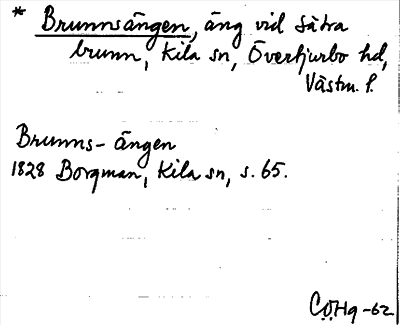 * Brunnsängen, äng vid Sätra
brunn, Kila sn, Övertjurbo hd,
Västm. l.
Brunns-ängen
1828 Borgman, Kila sn, s. 65.
C.O.Hg -62